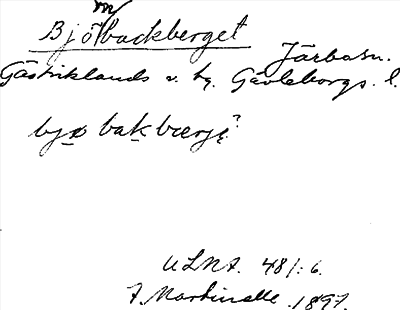 Björbackberget
Järbo sn.
Gästriklands v. tg. Gävleborgs l.
bjø bak bærjɛ?
ULMA. 481:6.
F. Martinelle. 1897.